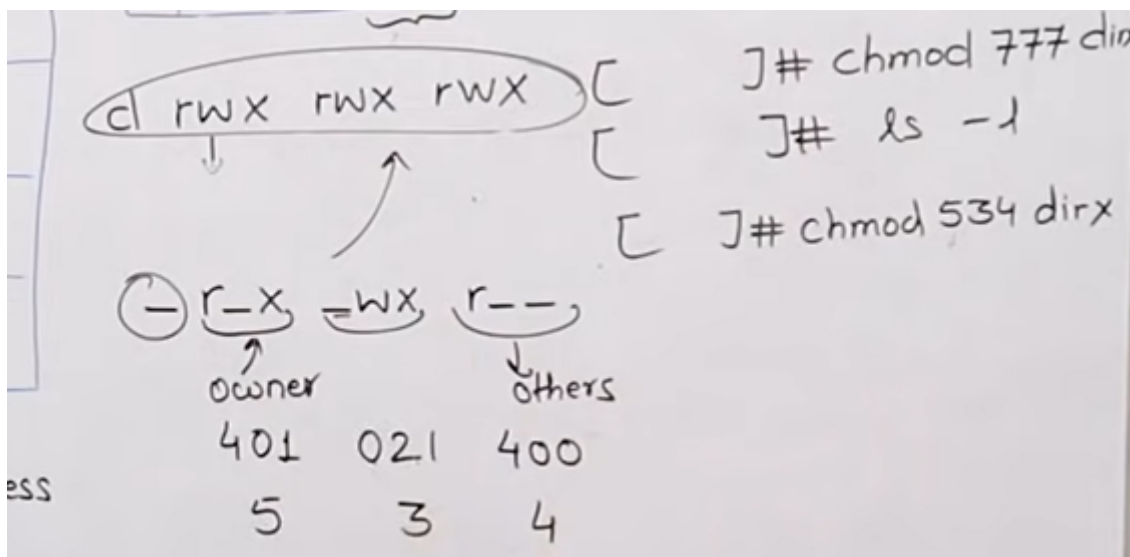 d rwx rwx rwx
[ ]# chmod 777 dir
[ ]# ls -l
[ ]# chmod 534 dirx
- r-x -wx r--
owner others
401 021 400
5 3 4
ess